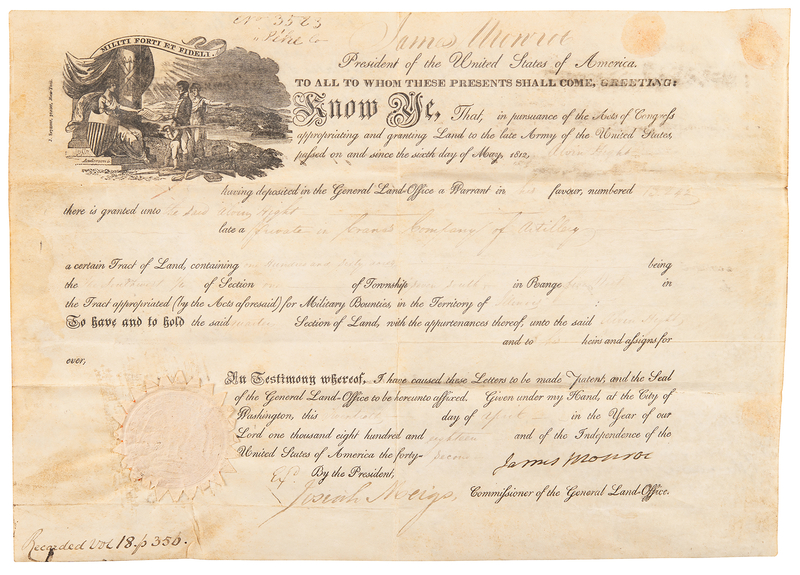 MILITI FORTI ET FIDELI.
No. 3583
Pike Co
James Monroe
President of the United States of America.
TO ALL TO WHOM THESE PRESENTS SHALL COME, GREETING:
Know Ye, That, in pursuance of the Acts of Congress
appropriating and granting Land to the late Army of the United States,
passed on and since the sixth day of May, 1812,
having deposited in the General Land-Office a Warrant in his favour, numbered
there is granted unto the said
late a Private in Company of Artillery
a certain Tract of Land, containing one hundred and sixty acres being
the of Section of Township in Range in
the Tract appropriated (by the Acts aforesaid) for Military Bounties, in the Territory of
To have and to hold the said quarter Section of Land, with the appurtenances thereof, unto the said
and to his heirs and assigns for
ever,
In Testimony whereof, I have caused these Letters to be made Patent, and the Seal
of the General Land-Office to be hereunto affixed. Given under my Hand, at the City of
Washington, this day of April in the Year of our
Lord one thousand eight hundred and eighteen and of the Independence of the
United States of America the forty-second
James Monroe
By the President,
Josiah Meigs, Commissioner of the General Land-Office.
Recorded Vol 18. p 356.
Anderson